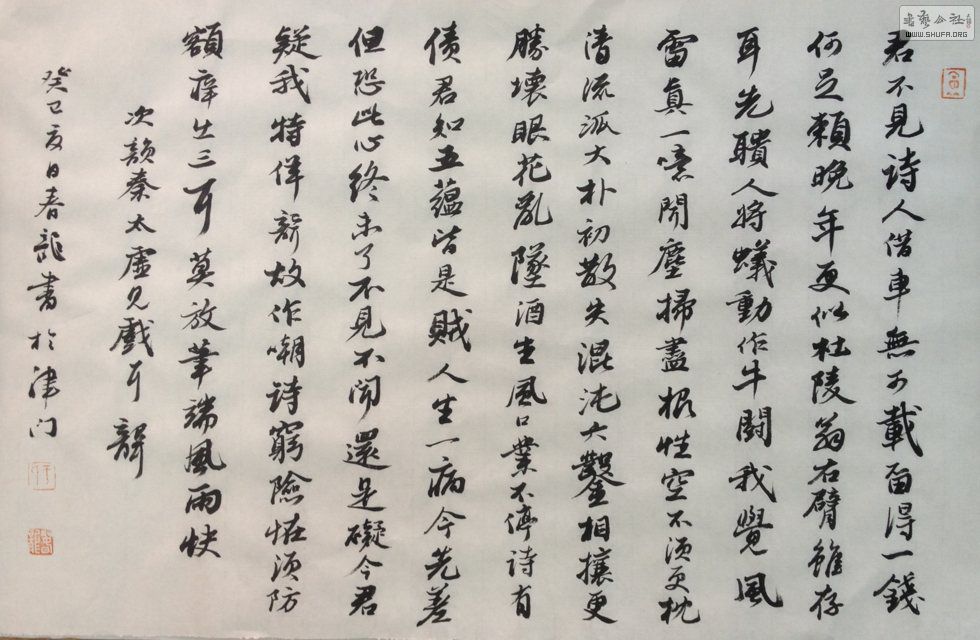 書藝公社
WWW.SHUFA.ORG
君不見诗人借車無可載畱得一錢
何足賴晚年更似杜陵翁右臂雖存
耳先聵人將蟻動作牛鬪我覺風
雷真一噫聞塵掃盡根性空不須更枕
清流派大朴初散失混沌六鑿相攘更
勝壞眼花亂墜酒生風口業不停诗有
债君知五蘊皆是賊人生一病今先差
但恐此心終未了不見不聞還是礙今君
疑我特佯聾故作嘲诗窮險怪須防
額痒出三耳莫放筆端風雨快
次韻秦太虛見戲耳聾
癸巳夏日春龍書於津门